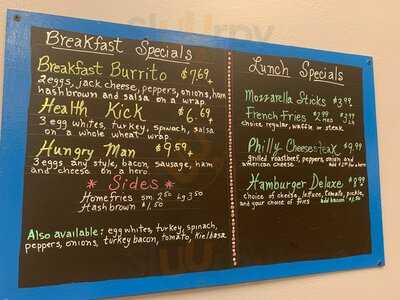 Breakfast Specials
Breakfast Burrito $7.69+
2eggs, jack cheese, peppers, onions, ham
hashbrown and salsa on a wrap.
Health Kick $6.69+
3 egg whites, turkey, spinach, salsa
on a whole wheat wrap.
Hungry Man $9.59+
3 eggs any style, bacon, sausage, ham
and cheese on a hero.
* Sides *
Homefries sm. 2.50 Lg 3.50
Hashbrown $1.50
Also available: egg whites, turkey, spinach,
peppers, onions, turkey bacon, tomato, Kielbasa
Lunch Specials
Mozzarella Sticks $3.99
French Fries
choice regular, waffle or steak
Philly Cheesesteak $9.99
grilled roastbeef, peppers, onion and
american cheese
Hamburger Deluxe $9.99
choice of cheese, lettuce, tomato, pickle,
and your choice of fries add bacon $1.50